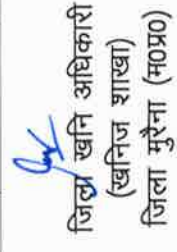 जिला खनि अधिकारी
(खनिज शाखा)
जिला मुरैना (म०प्र०)